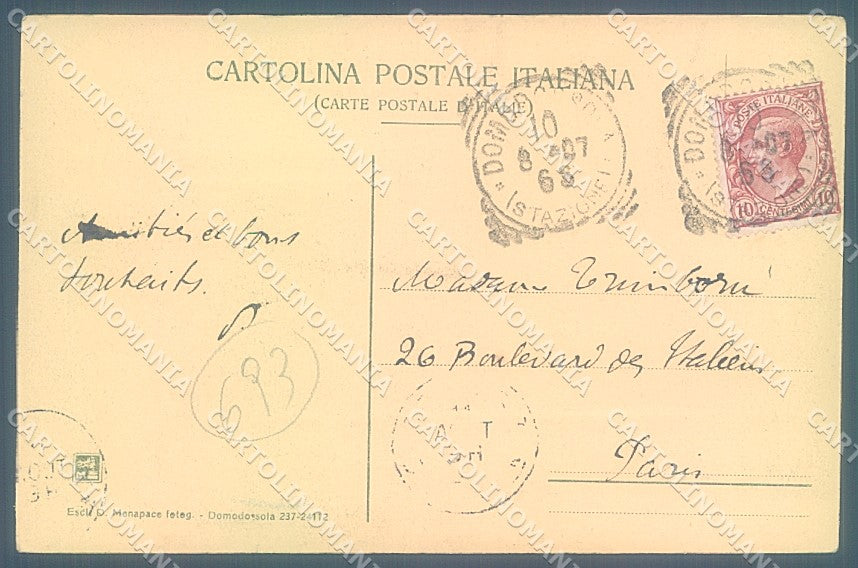 CARTOLINA POSTALE ITALIANA
(CARTE POSTALE D'ITALIE)
10
8 - 07
6 S
(STAZIONE)
POSTE ITALIANE
10 CENTESIMI 10
Amitiés et bons
souhaits.
Madame
26 Boulevard des Italiens
Paris
693
Escl. D. Menapace foteg. - Domodossola 237-24112
CARTOLINOMANIA